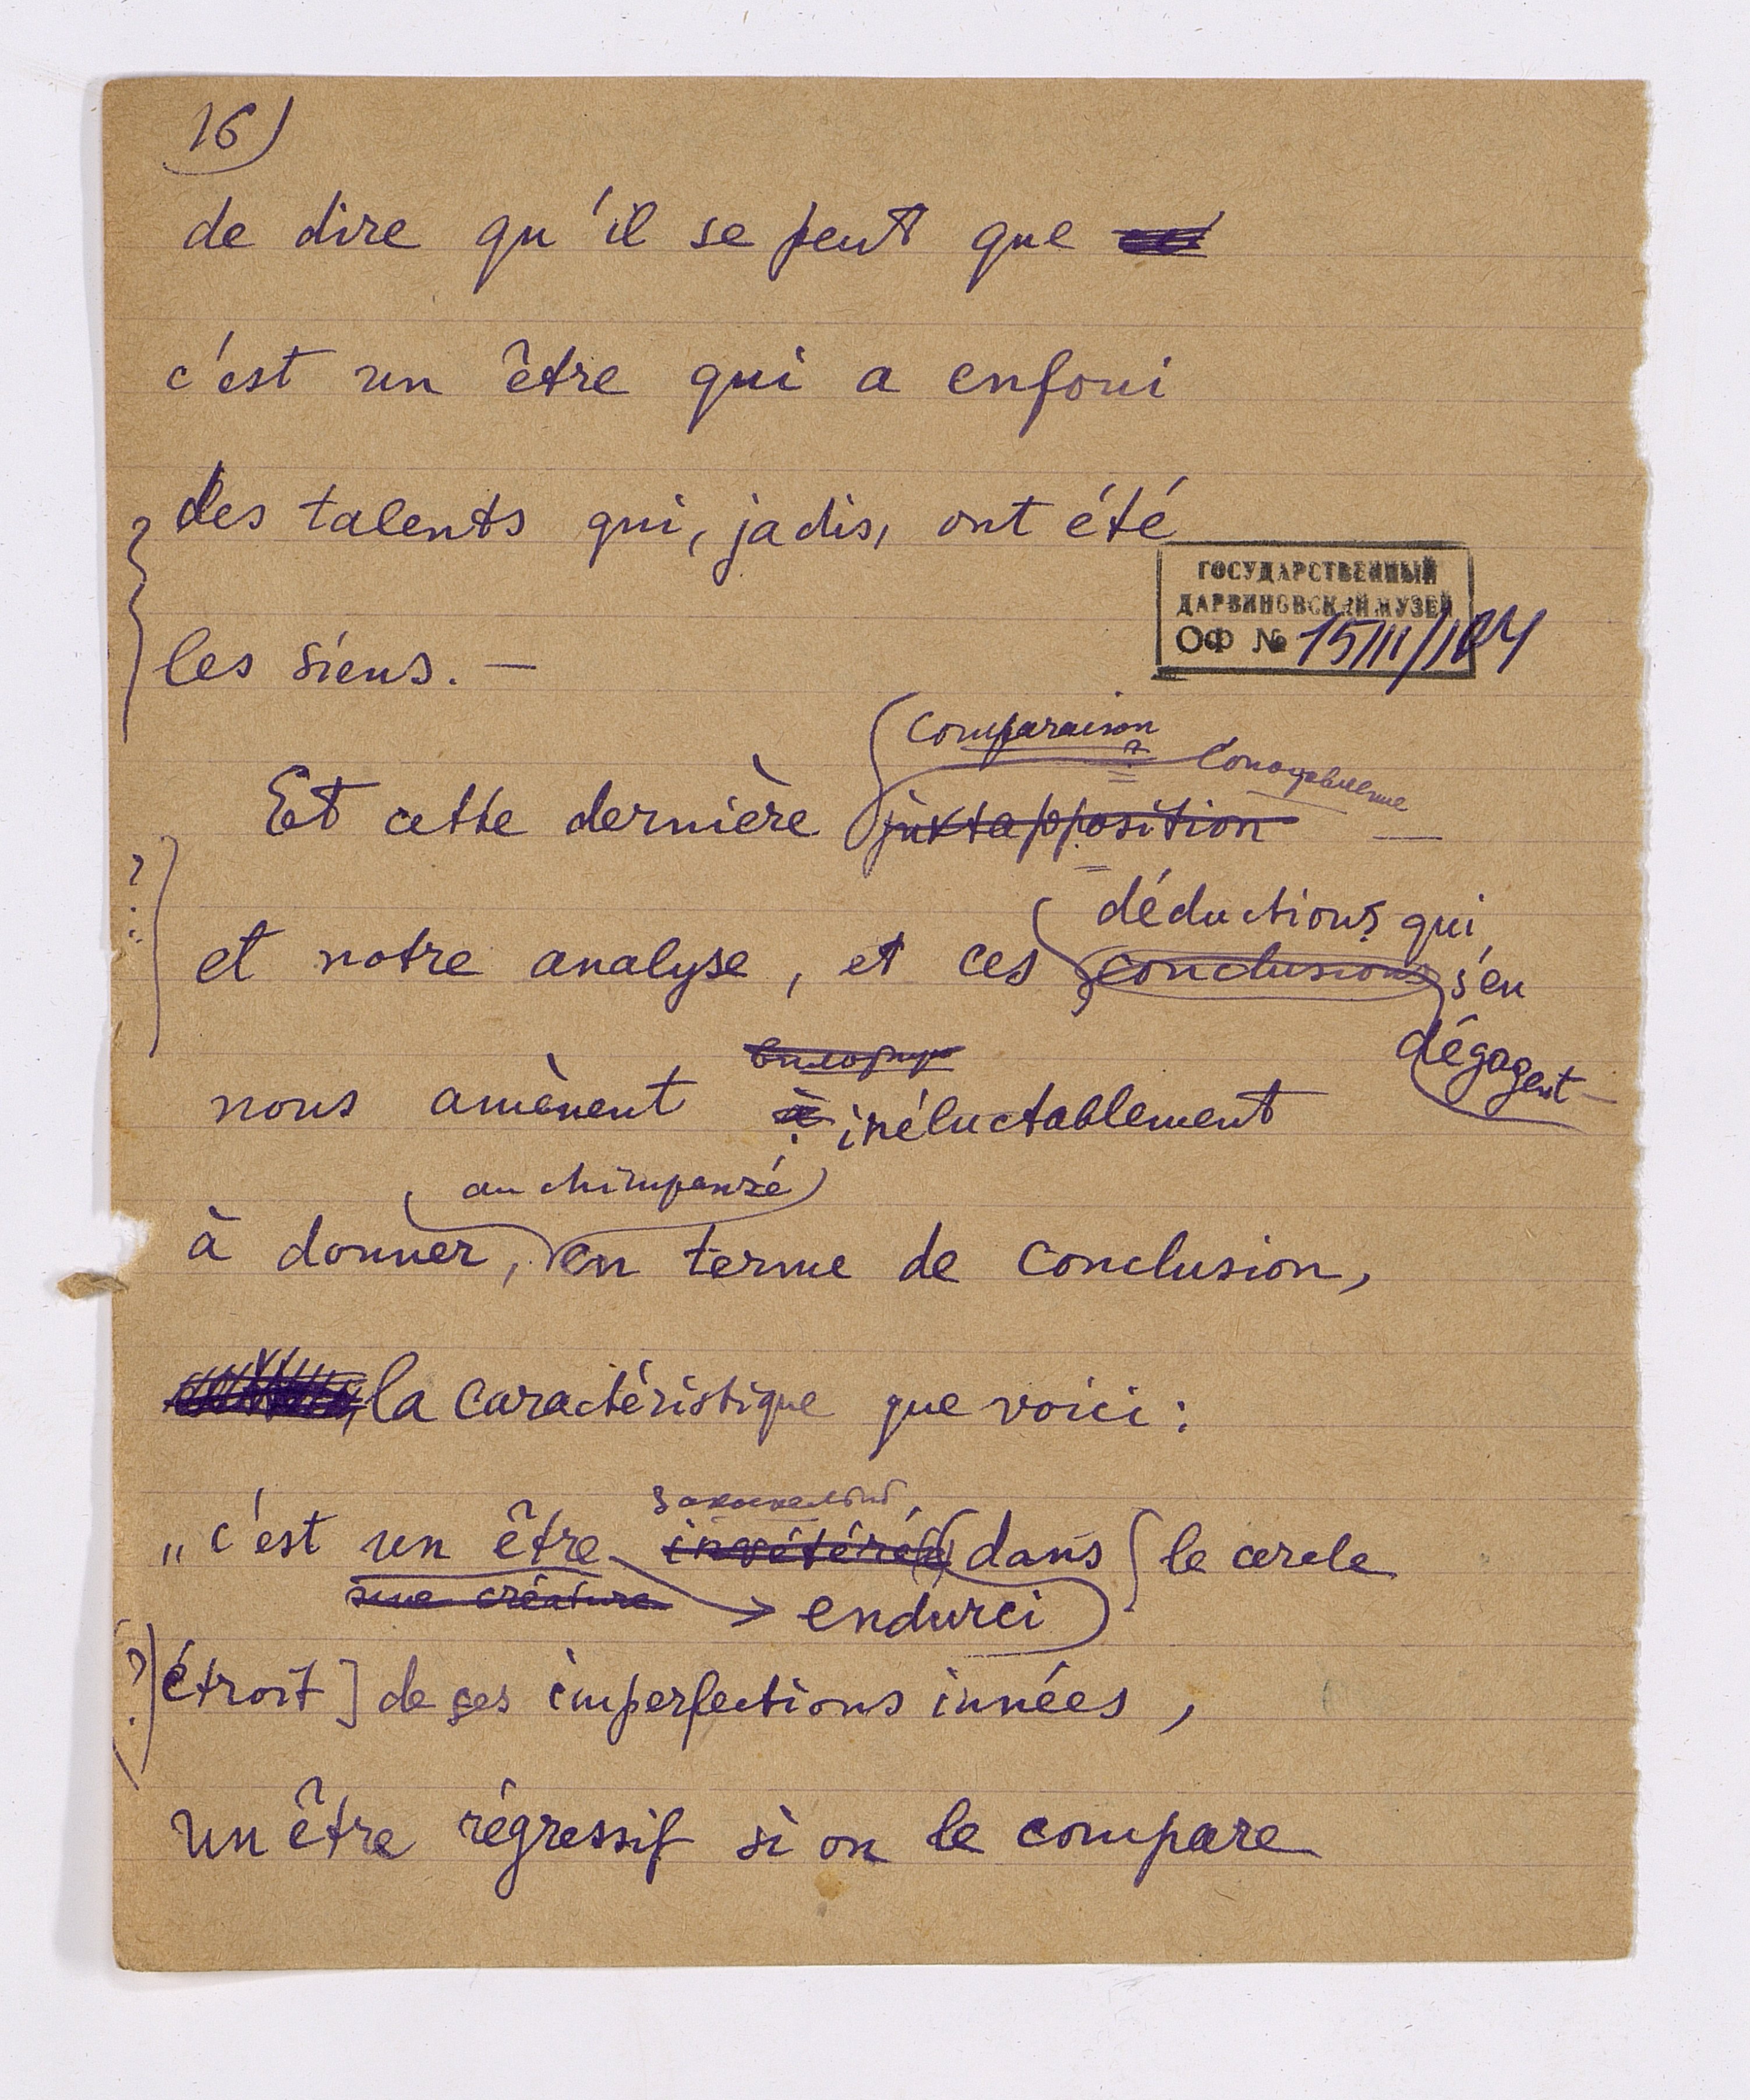 16)
de dire qu'il se peut que
c'est un être qui a enfoui
des talents qui, jadis, ont été
ГОСУДАРСТВЕННЫЙ
ДАРВИНОВСКИЙ МУЗЕЙ
ОФ №
les siens. —
comparaison
?
Сопоставление
Et cette dernière juxtapposition —
déductions qui
et notre analyse, et ces conclusions s'en
dégagent —
nous amènent à inéluctablement
au chimpanzé
à donner, en terme de conclusion,
la caractéristique que voici:
закоснелый
„c'est un être invétéré dans le cercle
une créature endurci
? étroit] de ses imperfections innées,
un être régressif si on le compare